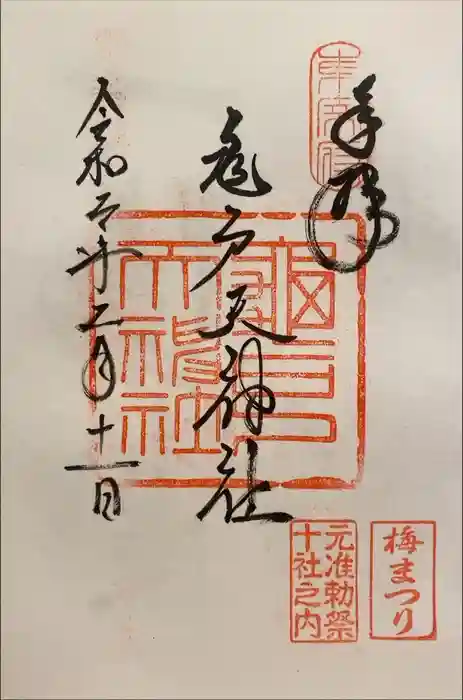 奉拝
東宰府
亀戸天神社
龜戸
天神社
令和年二月十一日
梅まつり
元准勅祭
十社之内